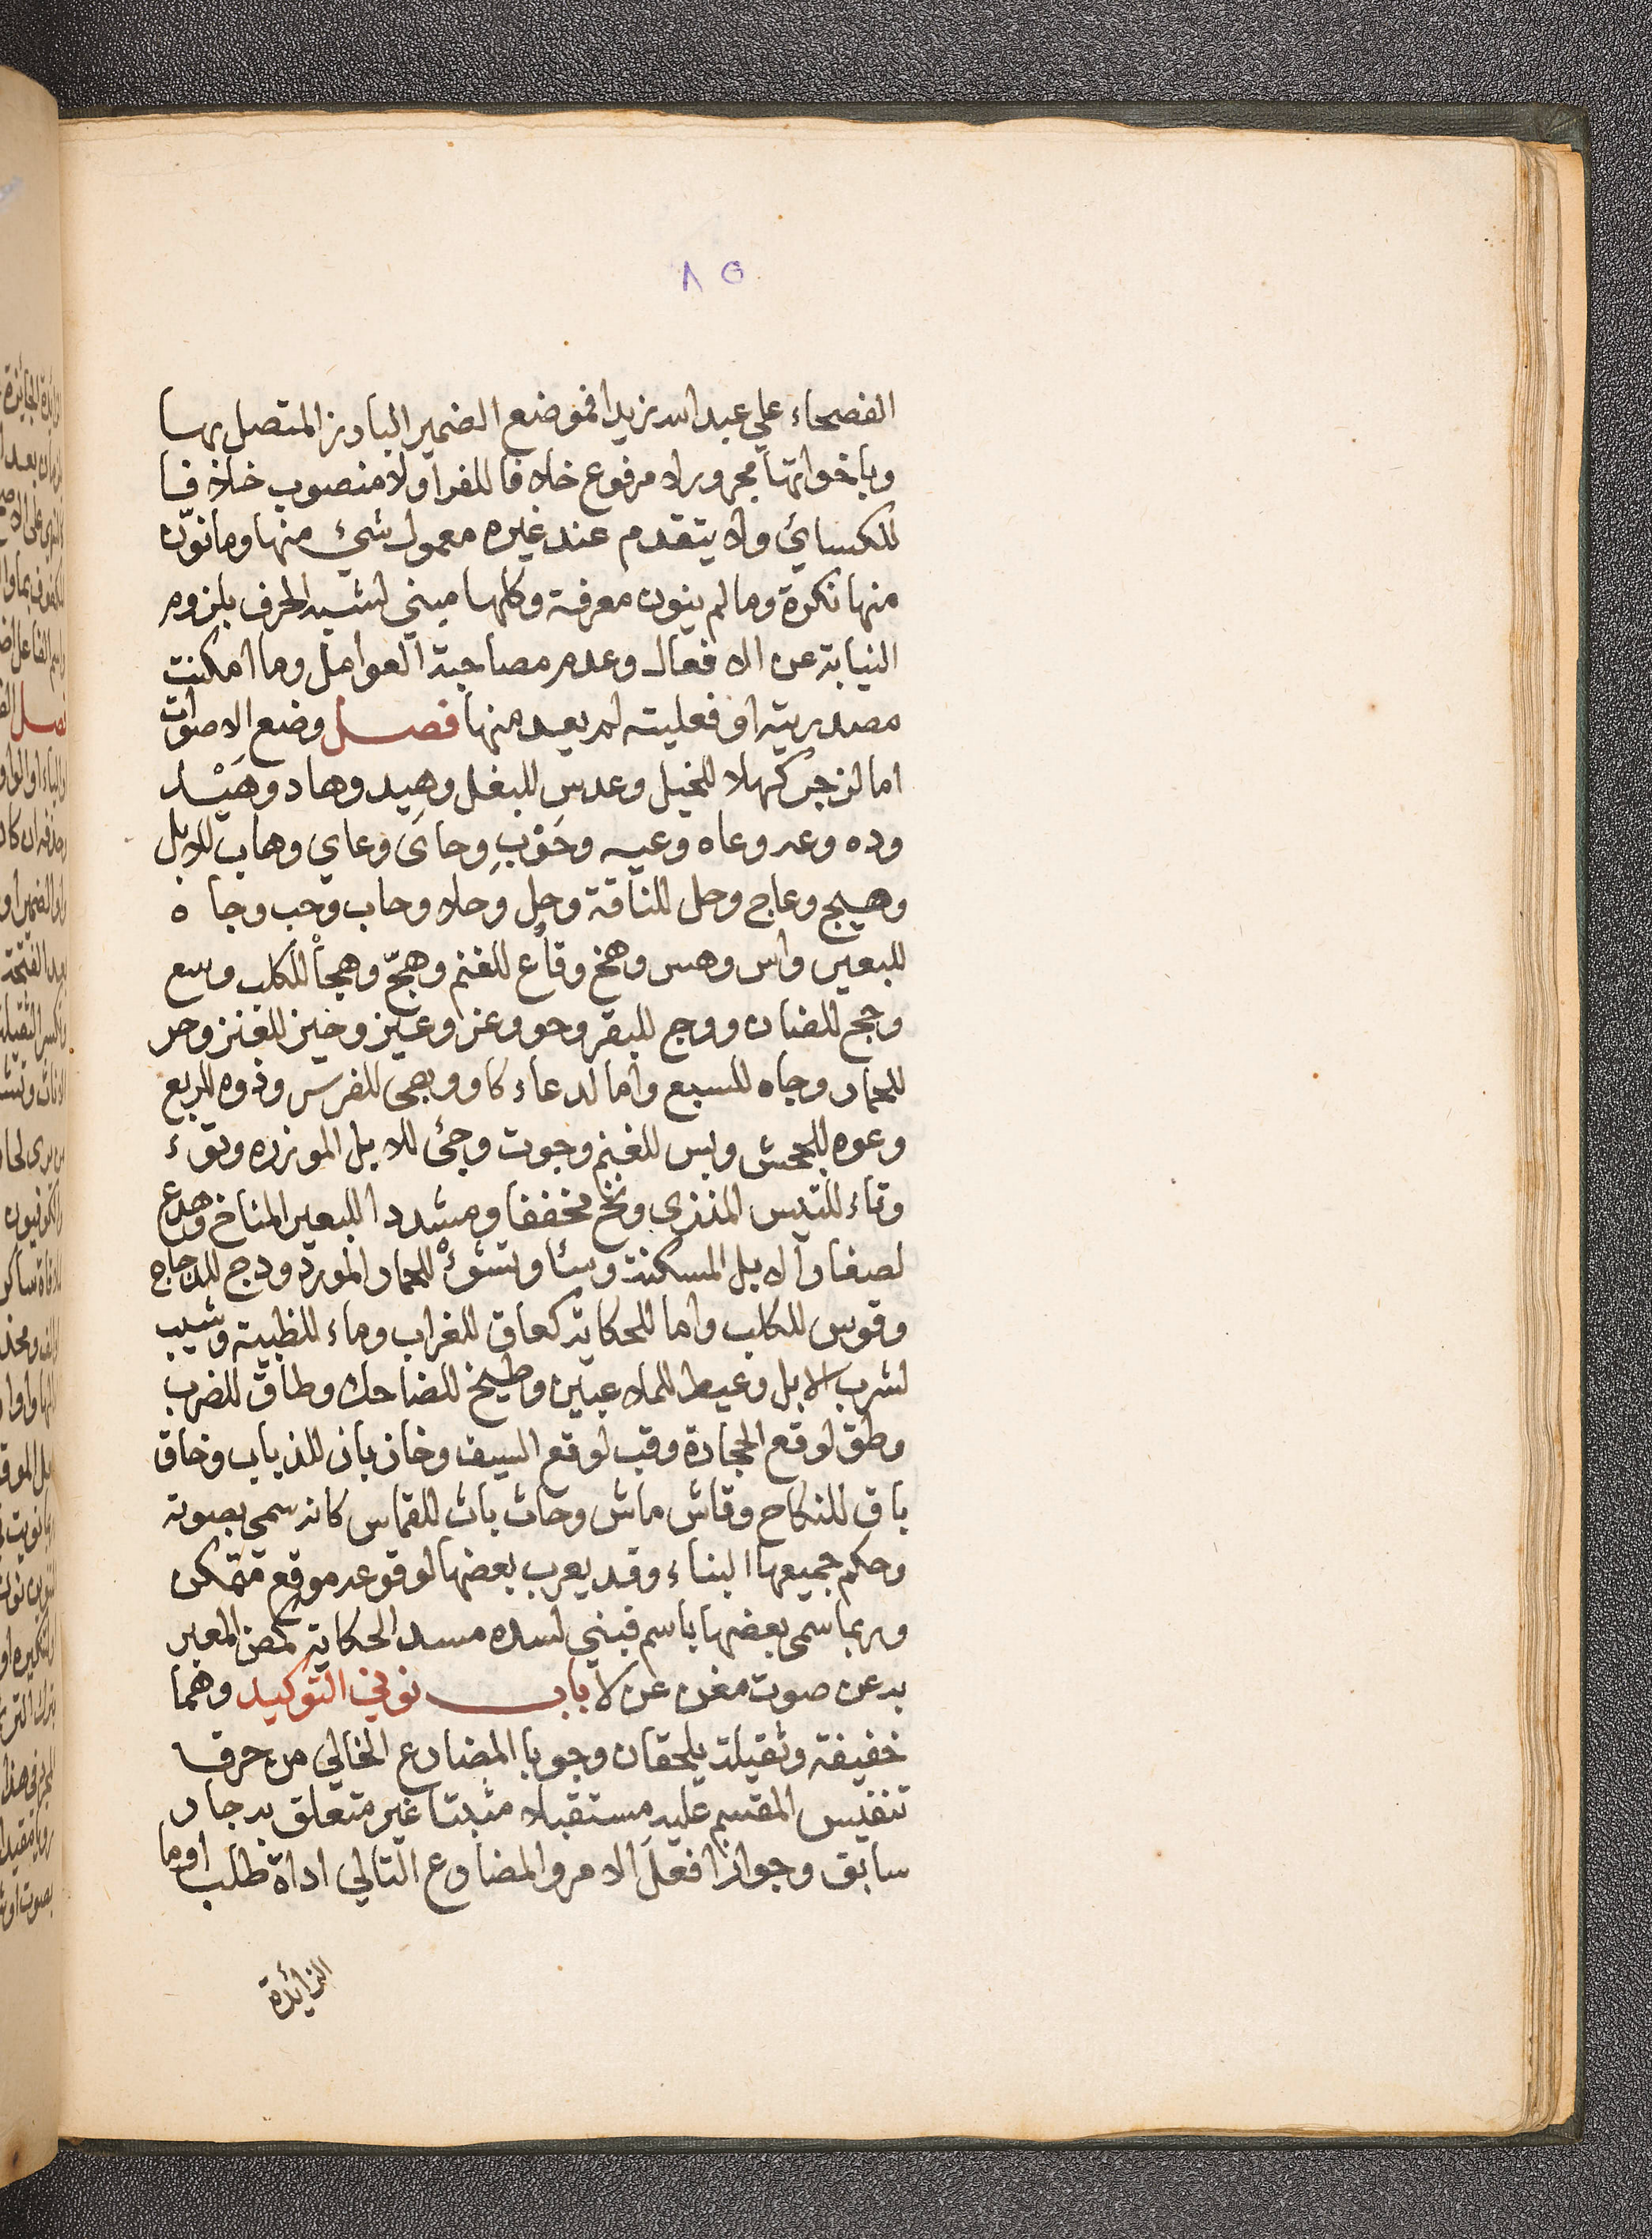 ٨٥
الفصحاء علي عبد الله زيدا فموضع الضمير البارز المتصل بها
وباخواتها مجرور لا مرفوع خلافا للفرا ولا منصوب خلافا
للكسائي ولا يتقدم عند غيره معمول شيء منها وما نوّن
منها نكرة وما لم ينون معرفة وكلها مبني لشبه الحرف بلزوم
النيابة عن الافعال وعدم مصاحبة العوامل وما امكنت
مصدريته او فعليته لم يعد منها فصل وضع الاصوات
اما لزجر كهلا للخيل وعدس للبغل وهِيد وهاد وهَيْد
وده وعه وعاه وعيه وحَوْبِ وحاىَ وعاي وهاب للابل
وهيج وعاج وحل للناقة وحِل وحلا وحاب وحب وجاه
للبعير واس وهس وهخ وقاع للغنم وهجّ وهجاْ للكلب وسع
وجح للضان ووح للبقر وحو وعز وعيز وحيز للعنز وحر
للحمار وجاه للسبع واما لدعاء كاو وبهى للفرس ودوه للربع
وعوه للجحش وبس للغنم وجوت وجئ للابل الموزده وتوء
وتاء للتيس المنذرى ونخ مخففا ومشددا للبعير المناخ وهدع
لصغار الابل المسكنة وسْا وتشوءْ للحمار المورد ودج للدجاج
وقوس للكلب واما للحكاية كغاق للغراب وماء للظبية وشيب
لشرب الابل وعيط للملاعبين وطيخ للضاحك وطاق للضرب
وطق لوقع الحجارة وقب لوقع السيف وخازباز للذباب وخاق
باق للنكاح وقاش ماش وحاث باث للقماش كانه سمي بصوته
وحكم جميعها البناء وقد يعرب بعضها لوقوعه موقع متمكن
وربما سمى بعضها باسم فبني لسده مسد الحكاية كمض المعبر
به عن صوت مغن عن لا باب نوني التوكيد وهما
خفيفة وثقيلة يلحقان وجوبا المضارع الخالي من حرف
تنفيس المقسم عليه مستقبلا مثبتا غير متعلق به جار
سابق وجوازا فعل الامر والمضارع التالي اداة طلب او ما
الزائدة